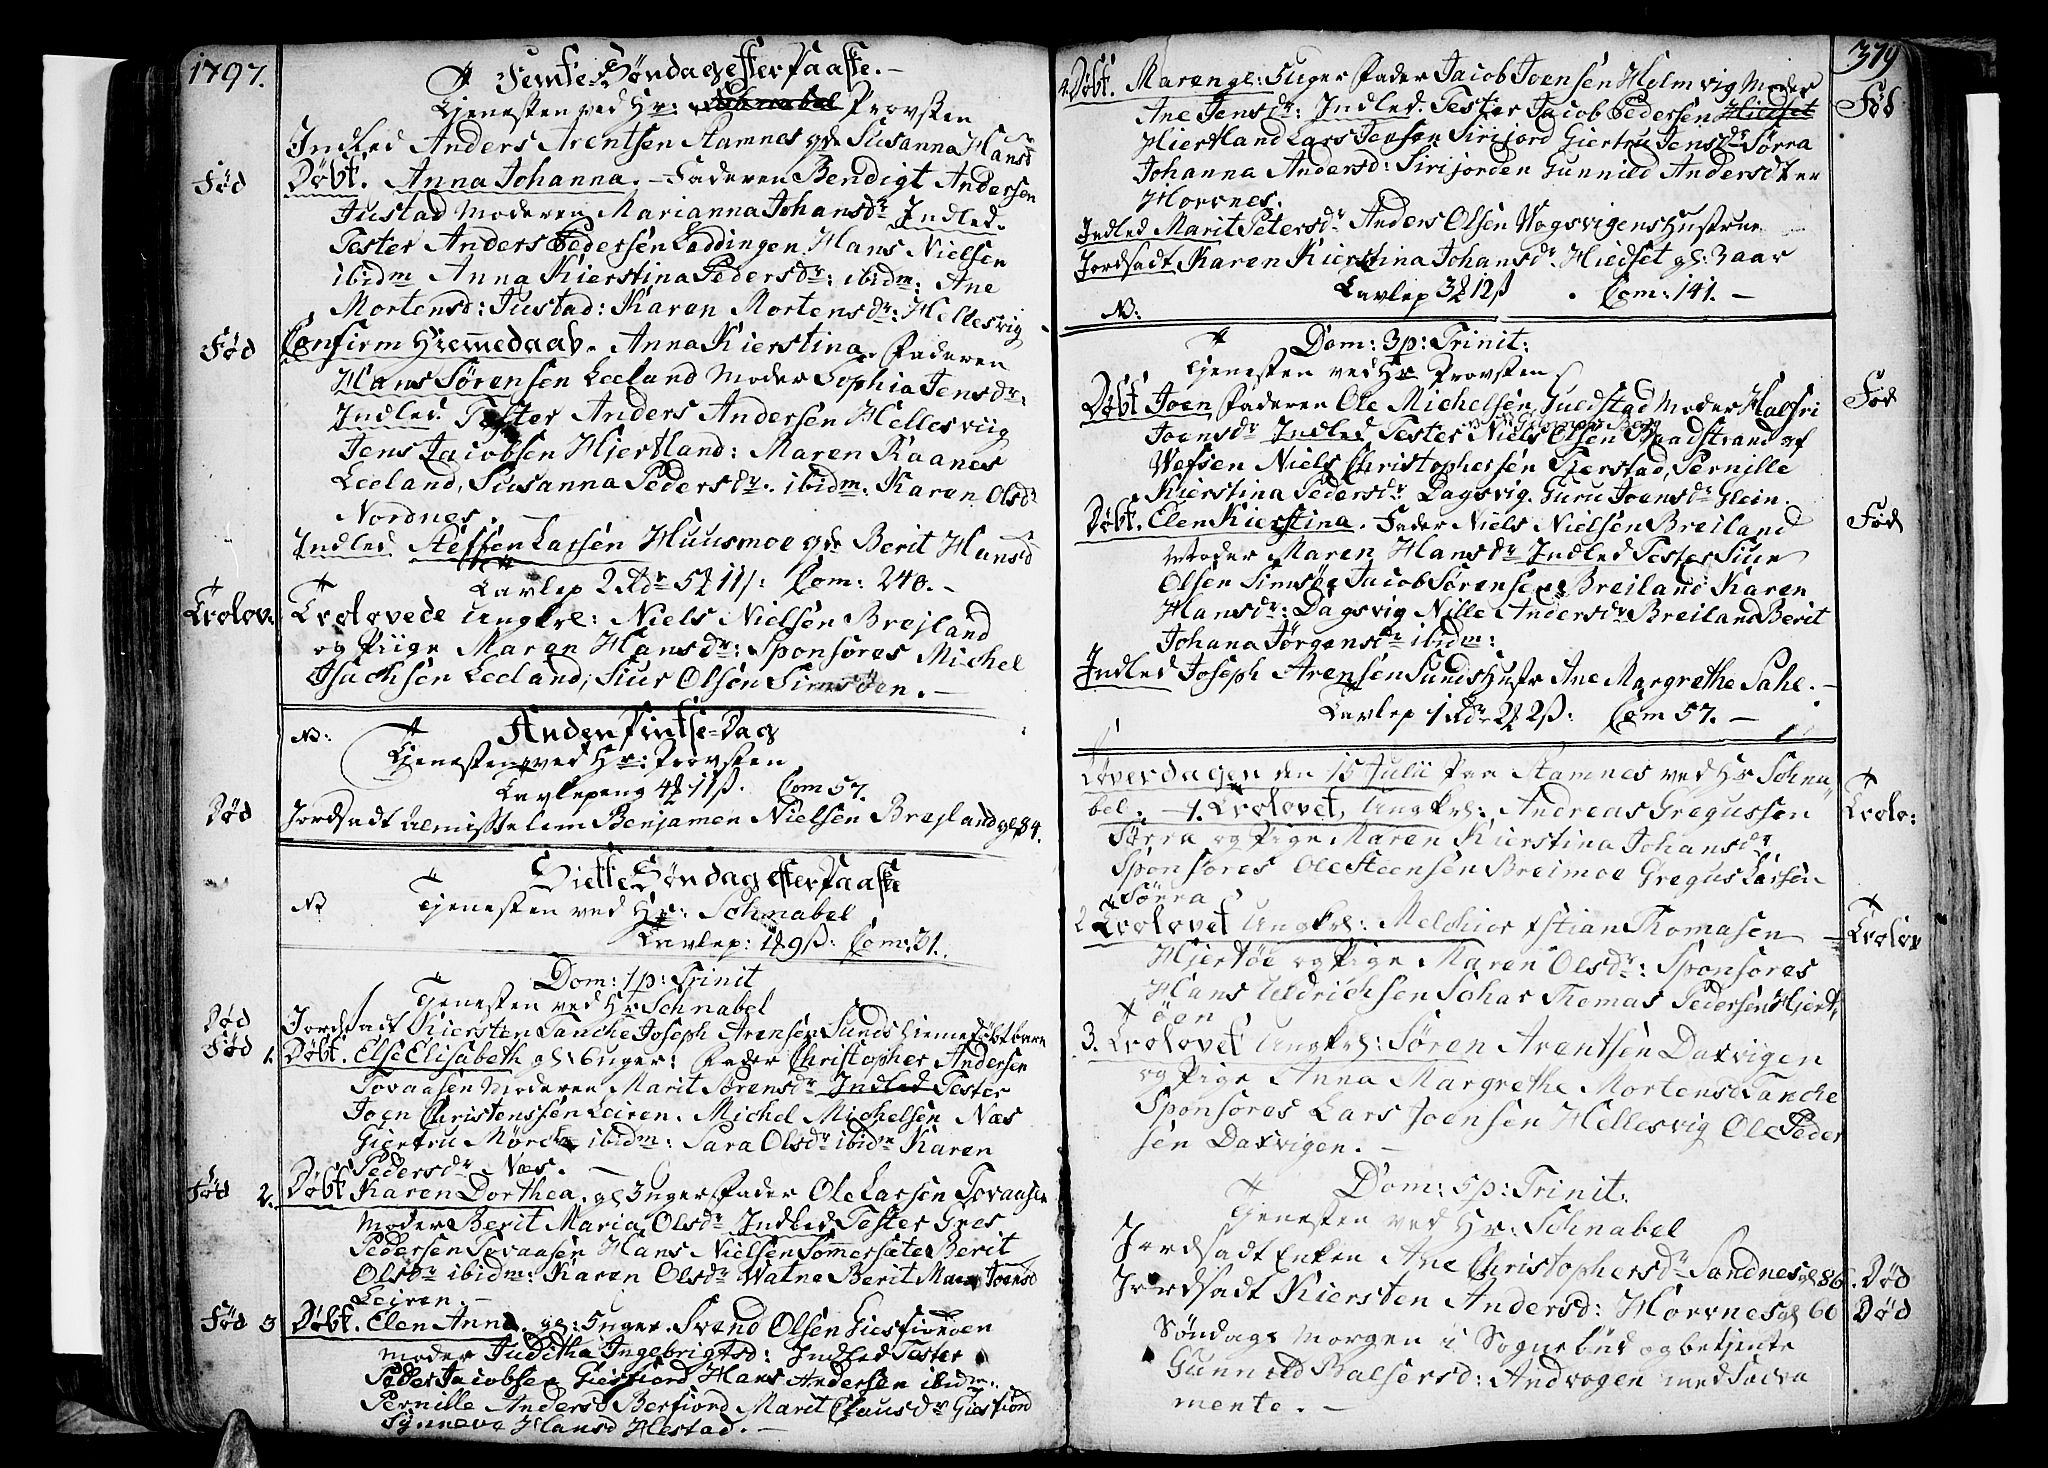 1797.
Femte Søndag efter Paaske. -
Tienesten ved Hr: Schnabel Provsten
Indled Anders Arentsen Stamnes qde Susanna Hansdr
Fød
Døbt. Anna Johanna. - Faderen Bendigt Andersen
Justad Moderen Marianna Johansdr Indled.
Tester Anders Pedersen Løddingen Hans Nielsen
ibidm Anna Kierstina Pedersdr: ibidm: Ane
Mortensd: Justad: Karen Mortensdr: Hellesvig
Fød
Confirm Hiemedaab. Anna Kierstina. Faderen
Hans Sørensen Leeland Moder Sophia Jensdr:
Indled. Tester Anders Andersen Hellesviig
Jens Jacobsen Hjertland: Maren Raanes
Leeland, Susanna Pedersdr. ibidm: Karen Olsdr
Nordnes. -
Indled. Steffen Larsen Huusmoe qde Berit Hansd
Tavlep 2 Rdr 5 11 /: Com: 240. -
Trolov:
Trolovede Ungkrl: Niels Nielsen Brejland
og Piige Maren Hansdr: Sponsores Michel
Isachsen Leeland, Siur Olsen Simsøen. -
N:
Anden Pintse-Dag
Tienesten ved Hr: Provsten
Tavlepeng 4 11 ß. Com 57.
Død
Jordfadt Benjamen Nielsen Brejland gl 84.
Siette Søndag efter Paaske
N
Tjenesten ved Hr: Schnabel
Tavlep: 1 9 ß: Com: 31.
Dom: 1 p: Trinit
Tjenesten ved Hr Schnabel
Død
Jordfadt Kiersten Tanche Joseph Arensen Sunds hiemedøbt barn
Fød 1.
Døbt. Else Elisabeth gl: 6 uger: Fader Christopher Andersen
Tovaasen Moderen Marit Sørensdr Indled Tester
Joen Christenssen Leiren. Michel Michelsen Næs
Giertru Mörch ibidm: Sara Olsdr ibidm Karen
Pedersdr Næs. -
Fød 2.
Døbt Karen Dorthea. gl 3 uger Fader Ole Larsen Tovaasen
Moder Berit Maria Olsdr Indled Tester Gres
Pedersen Tovaasen Hans Nielsen Sommersæte Berit
Olsdr ibidm: Karen Olsdr Watne Berit Joensd
Leiren. -
Fød 3
Døbt. Elen Anna. gl: 5 uger. Svend Olsen
moder Juditha Ingebrigtsd: Indled Tester
Peder Jacobsen Giesfiord Hans Andersen ibidm:
Pernille Andersd Berfiord Marit Clausdr Giesfiord
Synneve Hansd Hestad. -
379
Døbt. Maren gl: 5 uger Fader Jacob Joensen Helmvig Moder
Fød
Ane Jensdr: Indled. Tester Jacob Pedersen Hiedset
Hiertland Lars Jensen Sirifjord Giertru Jensdr Sørra
Johanna Andersd: Sirijorden Gunnild Andersdter
Horvnes.
Indled Marit Petersdr Anders Olsen Vogsvigens Hustrue
Jordfadt Karen Kierstina Johansdr. Hiedset gl: 3 aar
Tavlep 3 12 ß Com: 141. -
N:
Dom: 3 p: Trinit:
Tjenesten ved Hr Provsten
Døbt Joen Faderen Ole Michelsen Guldstad Moder Halfri
Fød
Joensdr Indled Tester Niels Olsen Baadstrand af
Vefsen Niels Christophersen Tjerstad, Pernille
Kierstina Pedersdr Dagsvig. Guru Joensdr Hein.
Døbt. Elen Kierstina. Fader Niels Nielsen Breiland
Fød
Moder Maren Hansdr Indled Tester Siur
Olsen Simsöe Jacob Sørensen Breiland Karen
Hansdr: Dagsvig Nille Andersdr Breiland Berit
Johana Jørgensdr ibidm:
Indled Joseph Arensen Sunds Hustr Ane Margrethe Sahl. -
Tavlep 1 Rdr 2 2 ß: Com 57. -
Løverdagen den 15 Julii paa Stamnes ved Hr Schna-
bel. - 1. Trolovet, Ungkrl: Andreas Gregussen
Trolo:
Sørra og Pige Maren Kierstina Johansdr
Sponsores Ole Steensen Breimoe Gregus Larsen
Sørra
2 Trolovet Ungkrl: Melchior Xstian Thomasen
Trolov
Hjertøe og Pige Maren Olsdr: Sponsores
Hans Uldrichsen Sohar Thomas Pedersen Hjert,
øen
3. Trolovet Ungkrl: Søren Arentsen Daxvigen
og Pige Anna Margrethe Mortensd Tanche
Sponsores Lars Joensen Hellesvig Ole Peder
sen Daxvigen. -
Dom: 5 p: Trinit.
Tjenesten ved Hr: Schnabel
Jordfadt Enken Ane Christophersdr Sandnes gl 86. Død
Jordfadt Kiersten Andersd: Horvnes gl 66 Død
Søndags Morgen i Sognebud og betjente
Gunnild Balsersd: Andvogen med Sacra
mente. -